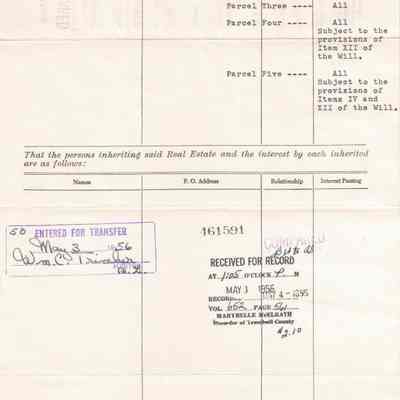 Parcel Three ---- All
Parcel Four ---- All
Subject to the
provisions of
Item XII of
the Will.
Parcel Five ---- All
Subject to the
provisions of
Items IV and
XII of the Will.
That the persons inheriting said Real Estate and the interest by each inherited
are as follows:
Names P. O. Address Relationship Interest Passing
50 ENTERED FOR TRANSFER
May 3 1956
Wm. C.
461591
COMPARED
RECEIVED FOR RECORD
AT 1:05 O'CLOCK P. M
MAY 3 1956
RECORDED
VOL 652 PAGE 561
MARYBELLE McELRATH
Recorder of Trumbull County
$2.10